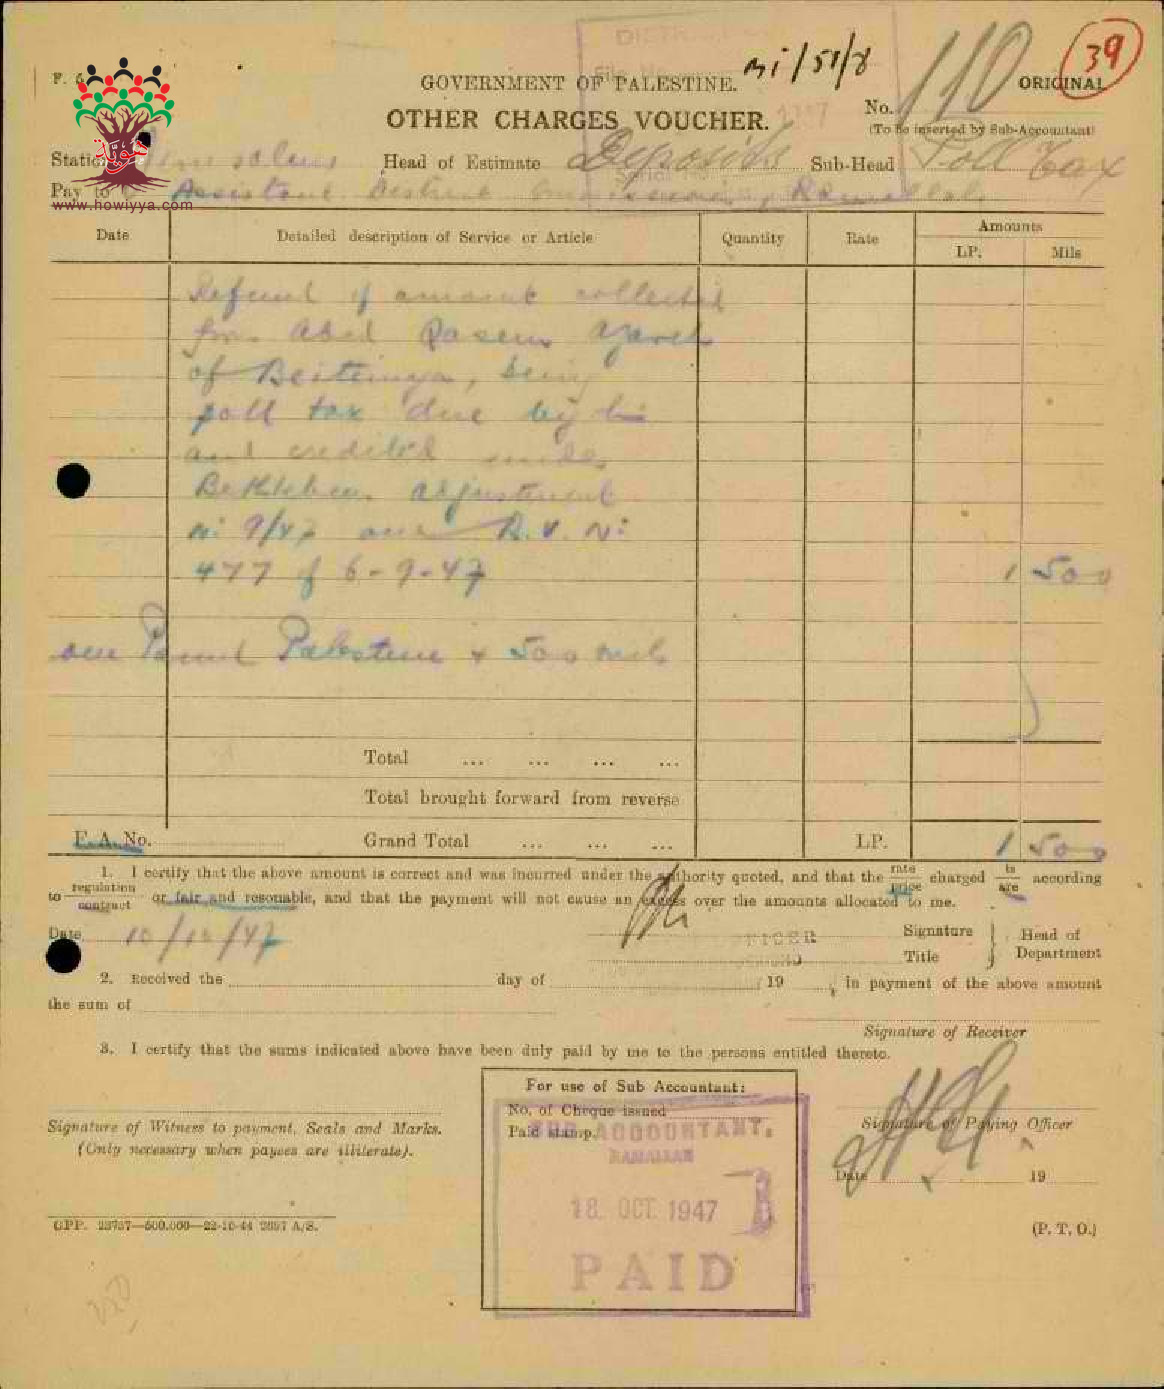 mi/51/8
110
39
F. 6
GOVERNMENT OF PALESTINE.
ORIGINAL
OTHER CHARGES VOUCHER.
No.
(To be inserted by Sub-Accountant)
Station Jerusalem Head of Estimate Deposits Sub-Head Poll Tax
Pay to Assistant District Commissioner, Ramallah
www.howiyya.com
هوية
Date
Detailed description of Service or Article
Quantity
Rate
Amounts
LP.
Mils
Refund of amount collected
from Abed Qasem
of Beitunya, being
poll tax due by him
and credited under
Bethlehem adjustment
No: 9/47 and R.V. No:
477 of 6-9-47
1 500
one Pound Palestine & 500 mils
Total ... ... ... ...
Total brought forward from reverse
E. A. No.
Grand Total ... ... ...
LP.
1 500
1. I certify that the above amount is correct and was incurred under the authority quoted, and that the rate price charged is are according
to regulation contract or fair and resonable, and that the payment will not cause an excess over the amounts allocated to me.
Date 10/10/47
OFFICER
Signature
Title
Head of
Department
2. Received the day of 19 , in payment of the above amount
the sum of
Signature of Receiver
3. I certify that the sums indicated above have been duly paid by me to the persons entitled thereto.
For use of Sub Accountant:
No. of Cheque issued
Paid stamp.
SUB ACCOUNTANT.
RAMALLAH
18. OCT. 1947
PAID
Signature of Witness to payment, Seals and Marks.
(Only necessary when payees are illiterate).
Signature of Paying Officer
Date 19
GPP. 23737—500.000—22-10-44 2897 A/S.
(P. T. O.)
350